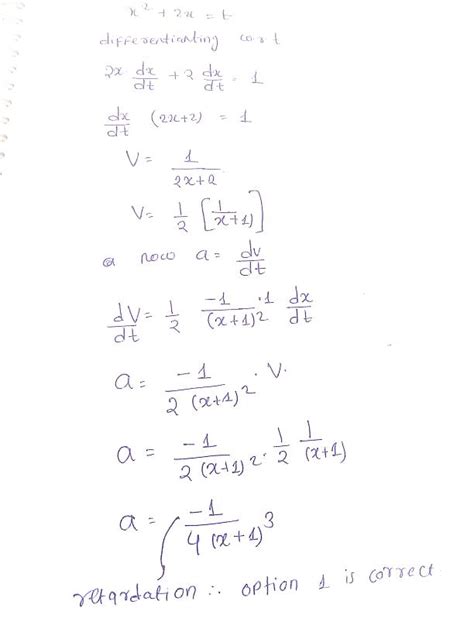 x² + 2x = t
differentianting w.r.t
2x dx/dt + 2 dx/dt = 1
dx/dt (2x+2) = 1
V = 1/(2x+2)
V = 1/2 [1/(x+1)]
now a = dv/dt
dV/dt = 1/2 -1/(x+1)² · 1 dx/dt
a = -1/(2 (x+1)²) · V.
a = -1/(2 (x+1)²) · 1/2 1/(x+1)
a = -1/(4 (x+1)³)
retardation ∴ option 1 is correct